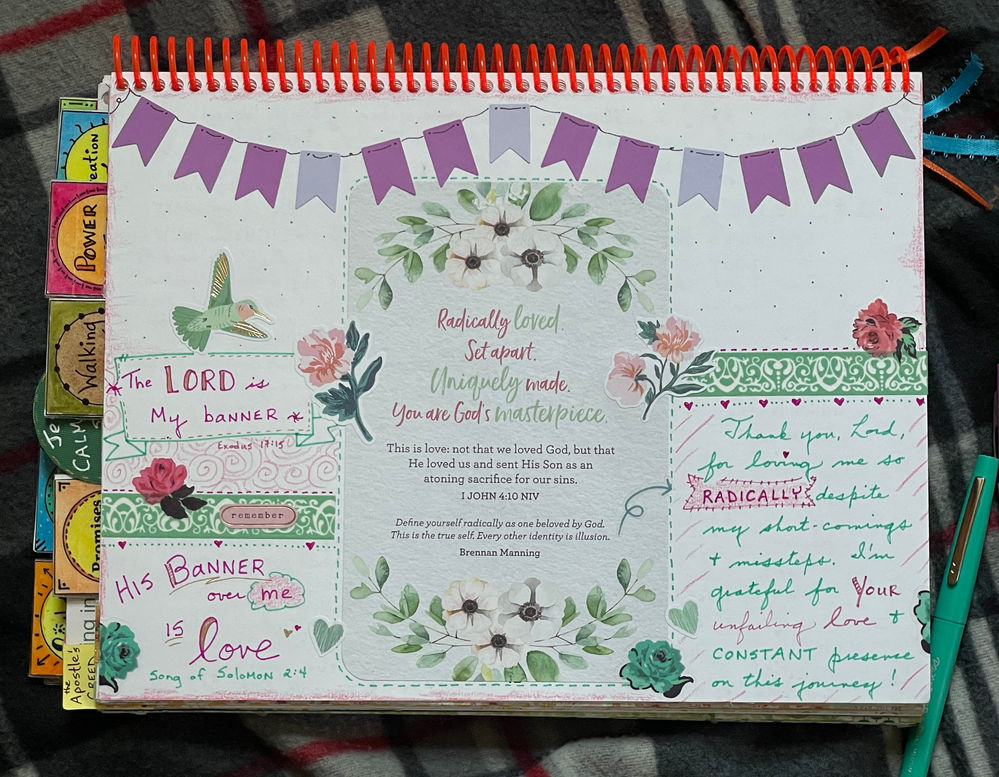 Creation
POWER
Walking
Je
CALM
Promises
ing in
the
Apostle's
CREED
The LORD is
My banner
Exodus 17:15
remember
HIS BANNER
over me
is
love
Song of Solomon 2:4
Radically loved.
Set apart.
Uniquely made.
You are God's masterpiece.
This is love: not that we loved God, but that
He loved us and sent His Son as an
atoning sacrifice for our sins.
I JOHN 4:10 NIV
Define yourself radically as one beloved by God.
This is the true self. Every other identity is illusion.
Brennan Manning
Thank you, Lord,
for loving me so
RADICALLY despite
my short-comings
+ missteps. I'm
grateful for YOUR
unfailing love +
CONSTANT presence
on this journey!